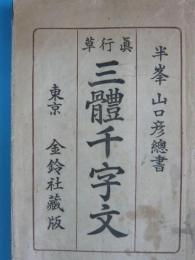 半峯 山口彦總書
眞行草
三體千字文
東京 金鈴社藏版